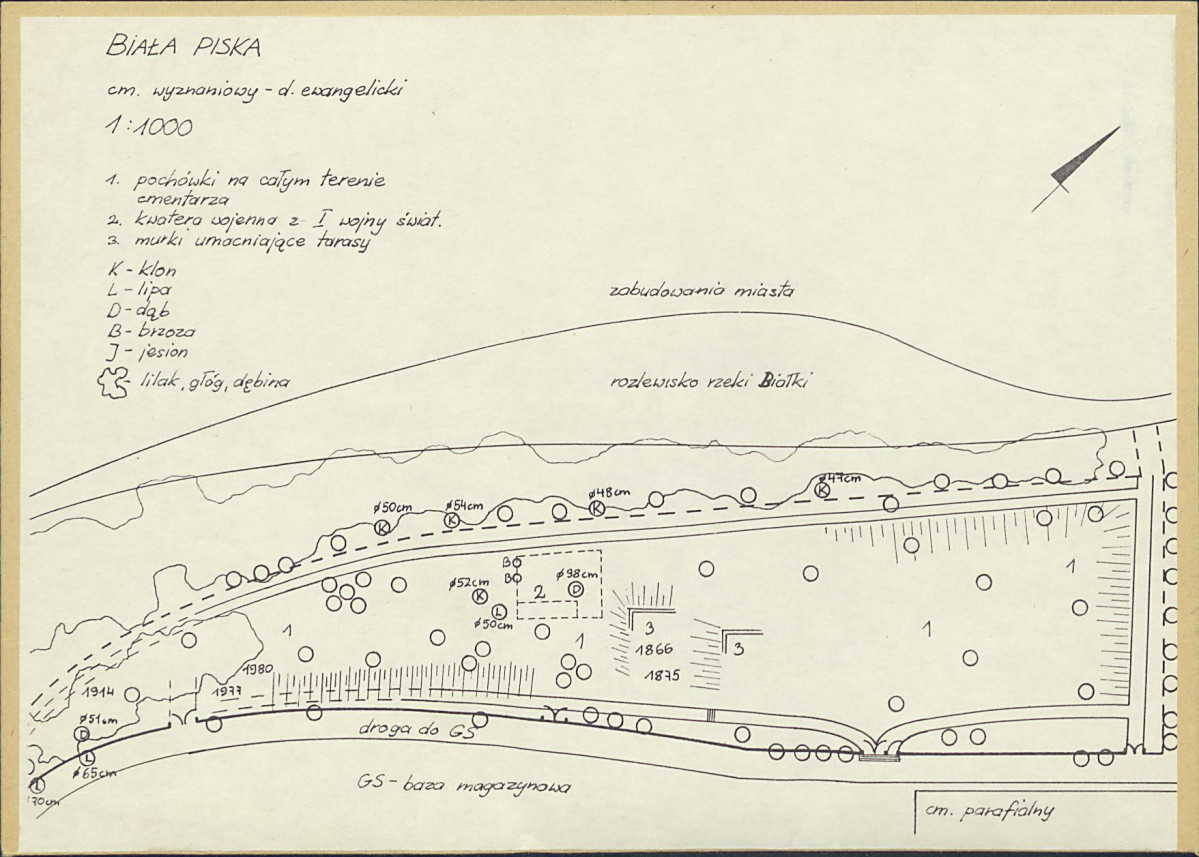 BIAŁA PISKA
cm. wyznaniowy – d. ewangelicki
1:1000
1. pochówki na całym terenie
cmentarza
2. kwatera wojenna z I wojny świat.
3. murki umacniające tarasy
K – klon
L – lipa
D – dąb
B – brzoza
J – jesion
– lilak, głóg, dębina
zabudowania miasta
rozlewisko rzeki Białki
ø47cm
K
ø48cm
K
ø50cm
K
ø54cm
K
B
B
ø98cm
D
2
ø52cm
K
L
ø50cm
1
1
1
1
3
1866
1875
3
1980
1977
1914
ø51cm
D
L
ø65cm
L
70cm
droga do GS
GS – baza magazynowa
cm. parafialny